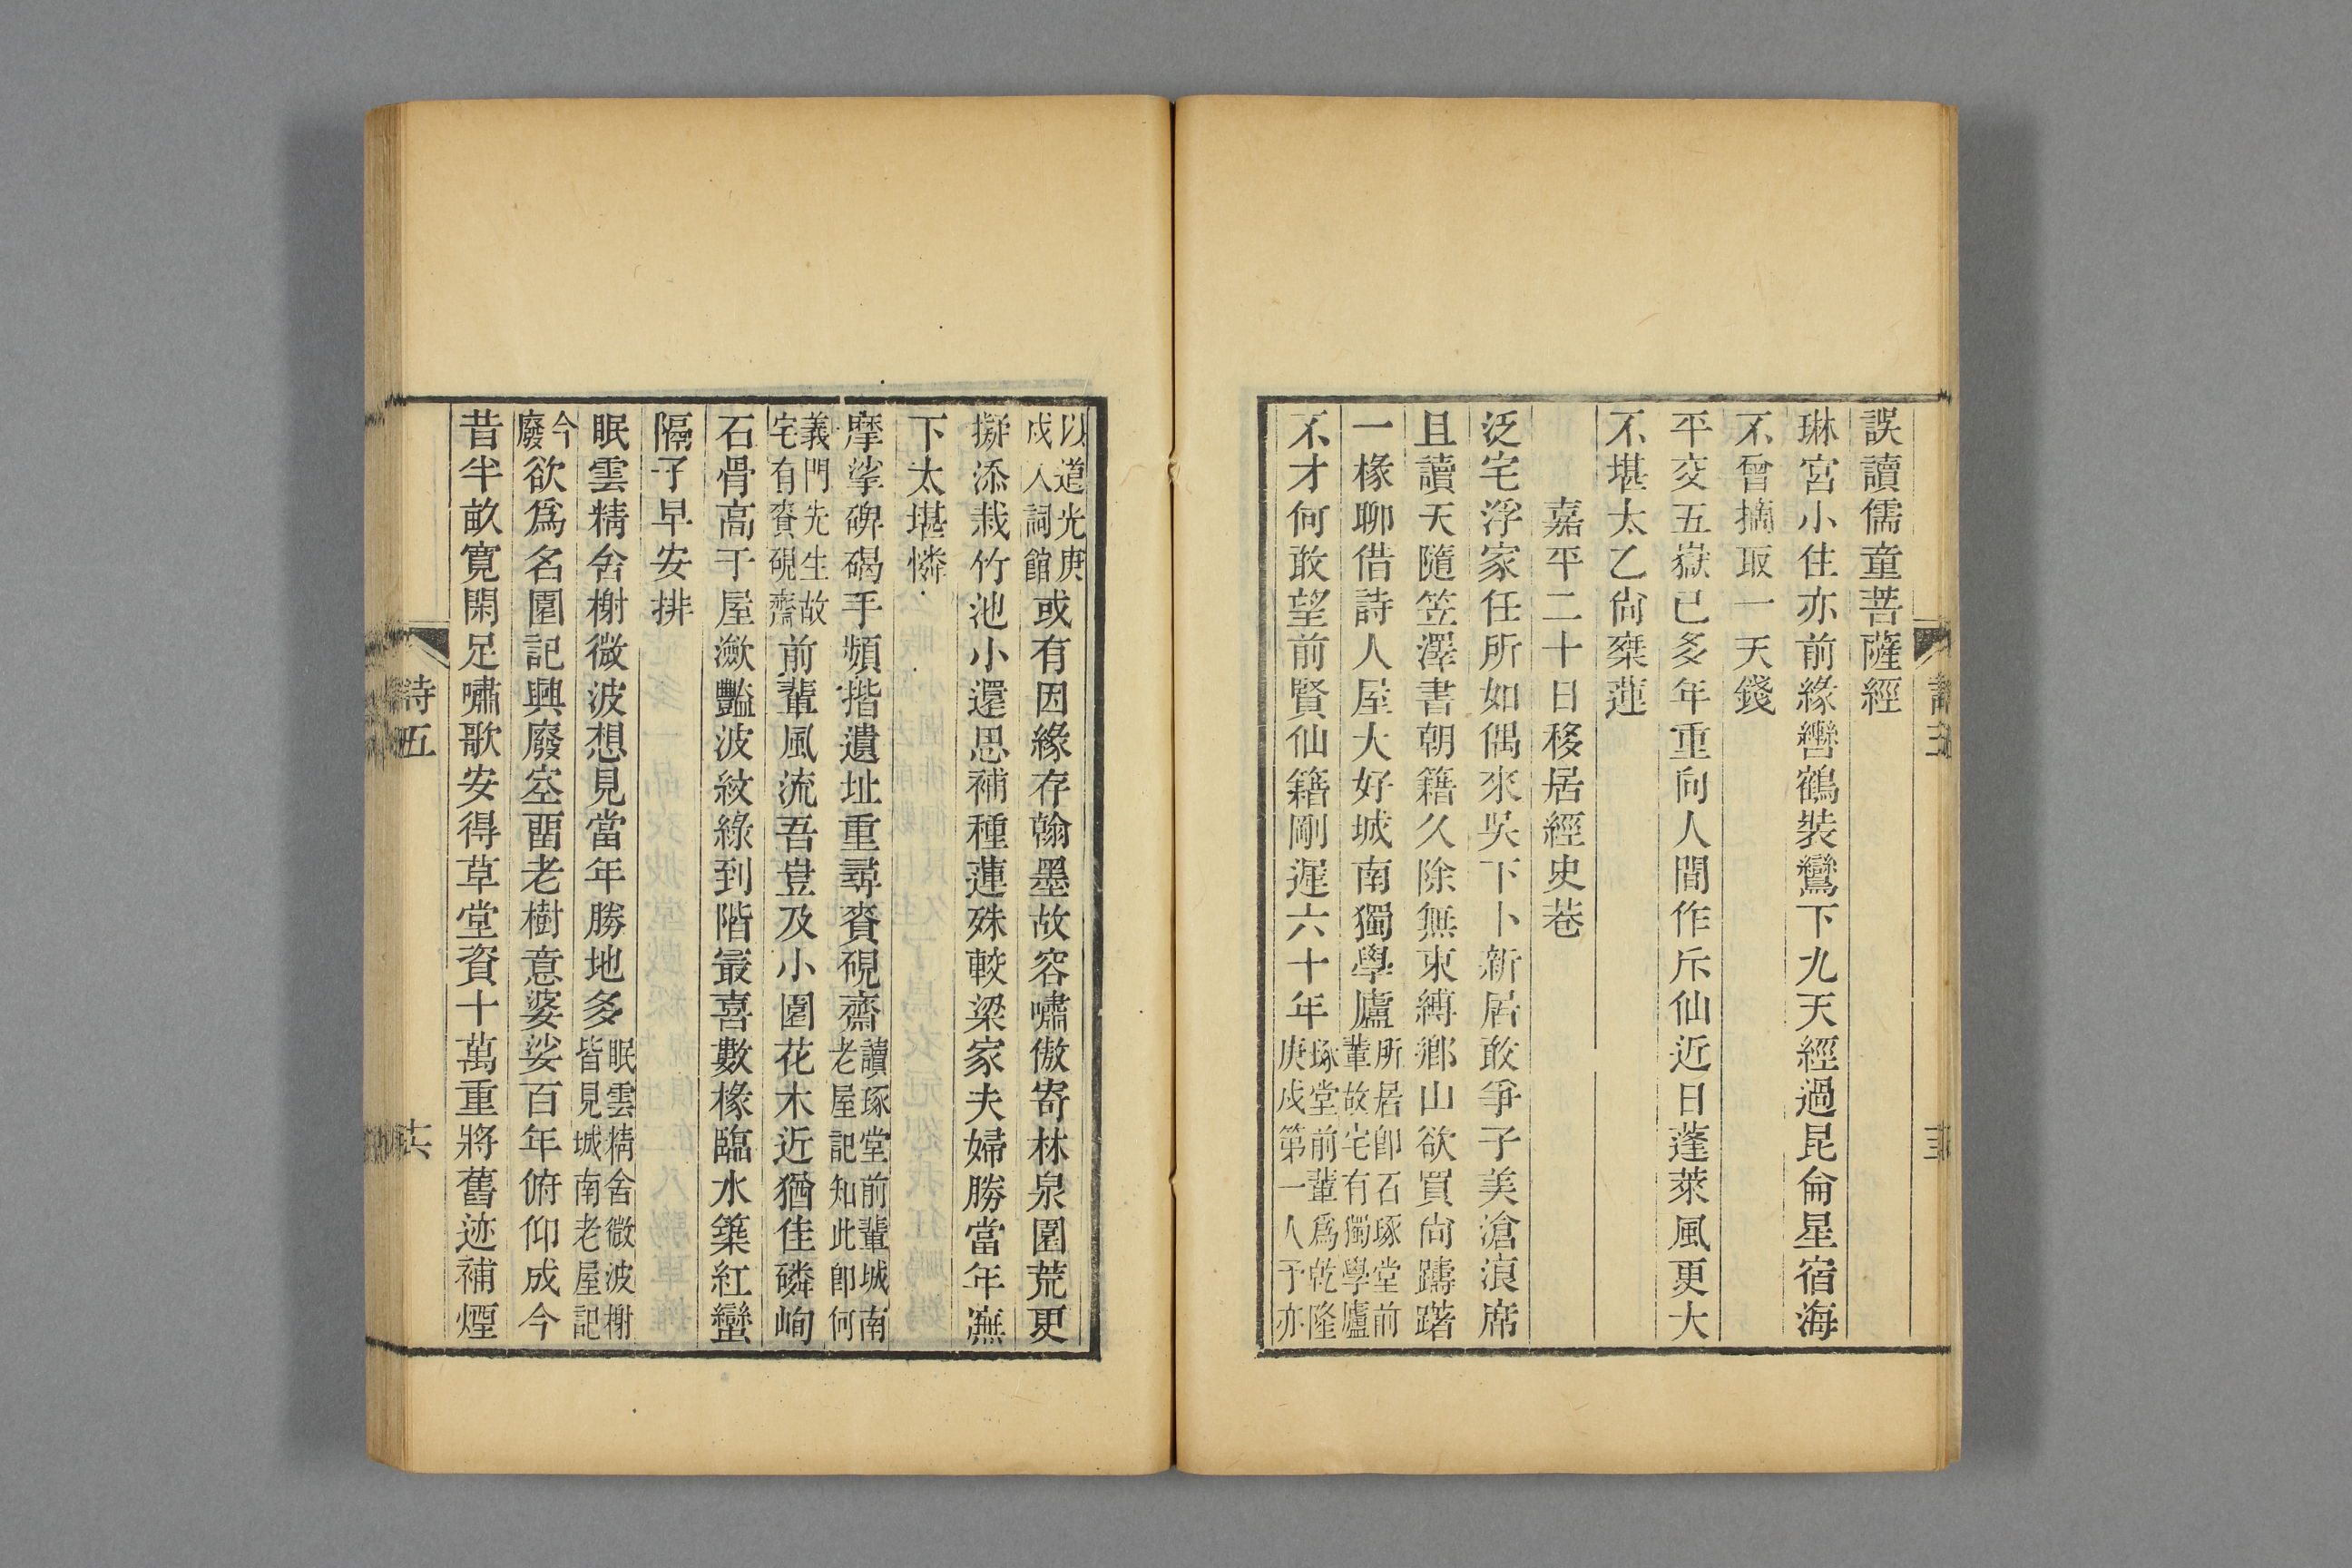 誤讀儒童菩薩經
琳宮小住亦前緣轡鶴裝鸞下九天經過昆侖星宿海
不曾摘取一天錢
平交五嶽已多年重向人間作斥仙近日蓬萊風更大
不堪太乙尙乘蓮
嘉平二十日移居經史巷
泛宅浮家任所如偶來吳下卜新居敢爭子美滄浪席
且讀天隨笠澤書朝籍久除無束縛鄕山欲買尙躊躇
一椽聊借詩人屋大好城南獨學廬所居卽石琢堂前輩故宅有獨學廬
不才何敢望前賢仙籍剛遲六十年琢堂前輩爲乾隆庚戌第一人予亦
以道光庚戌入詞館或有因緣存翰墨故容嘯傲寄林泉園荒更
擬添栽竹池小還思補種蓮殊較梁家夫婦勝當年廡
下太堪憐
摩挲碑碣手頻揩遺址重尋賚硯齋讀琢堂前輩城南老屋記知此卽何
義門先生故宅有賚硯齋前輩風流吾豈及小園花木近猶佳磷峋
石骨高于屋瀲豔波紋綠到階最喜數椽臨水築紅蠻
隔子早安排
眠雲精舍榭微波想見當年勝地多眠雲精舍微波榭皆見城南老屋記
今廢欲爲名園記興廢空畱老樹意婆娑百年俯仰成今
昔半畝寬閑足嘯歌安得草堂資十萬重將舊迹補煙
詩五
六